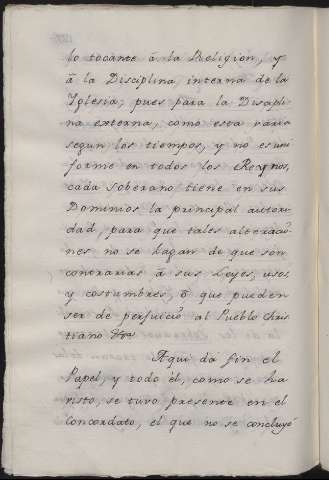 lo tocante â la Religion, y
â la Disciplina interna de la
Yglesia; pues para la Discipli
na externa, como esta varia
segun los tiempos, y no es uni
forme en todos los Reynos,
cada soberano tiene en sus
Dominios la principal autori
dad, para que tales alteracio
nes no se hagan de que son
contrarias â sus Leyes, usos,
y costumbres, ô que pueden
ser de perjuicio al Pueblo Chris
tiano
Aqui dà fin el
Papel, y todo èl, como se ha
visto, se tuvo presente en el
Concordato, el que no se concluyó